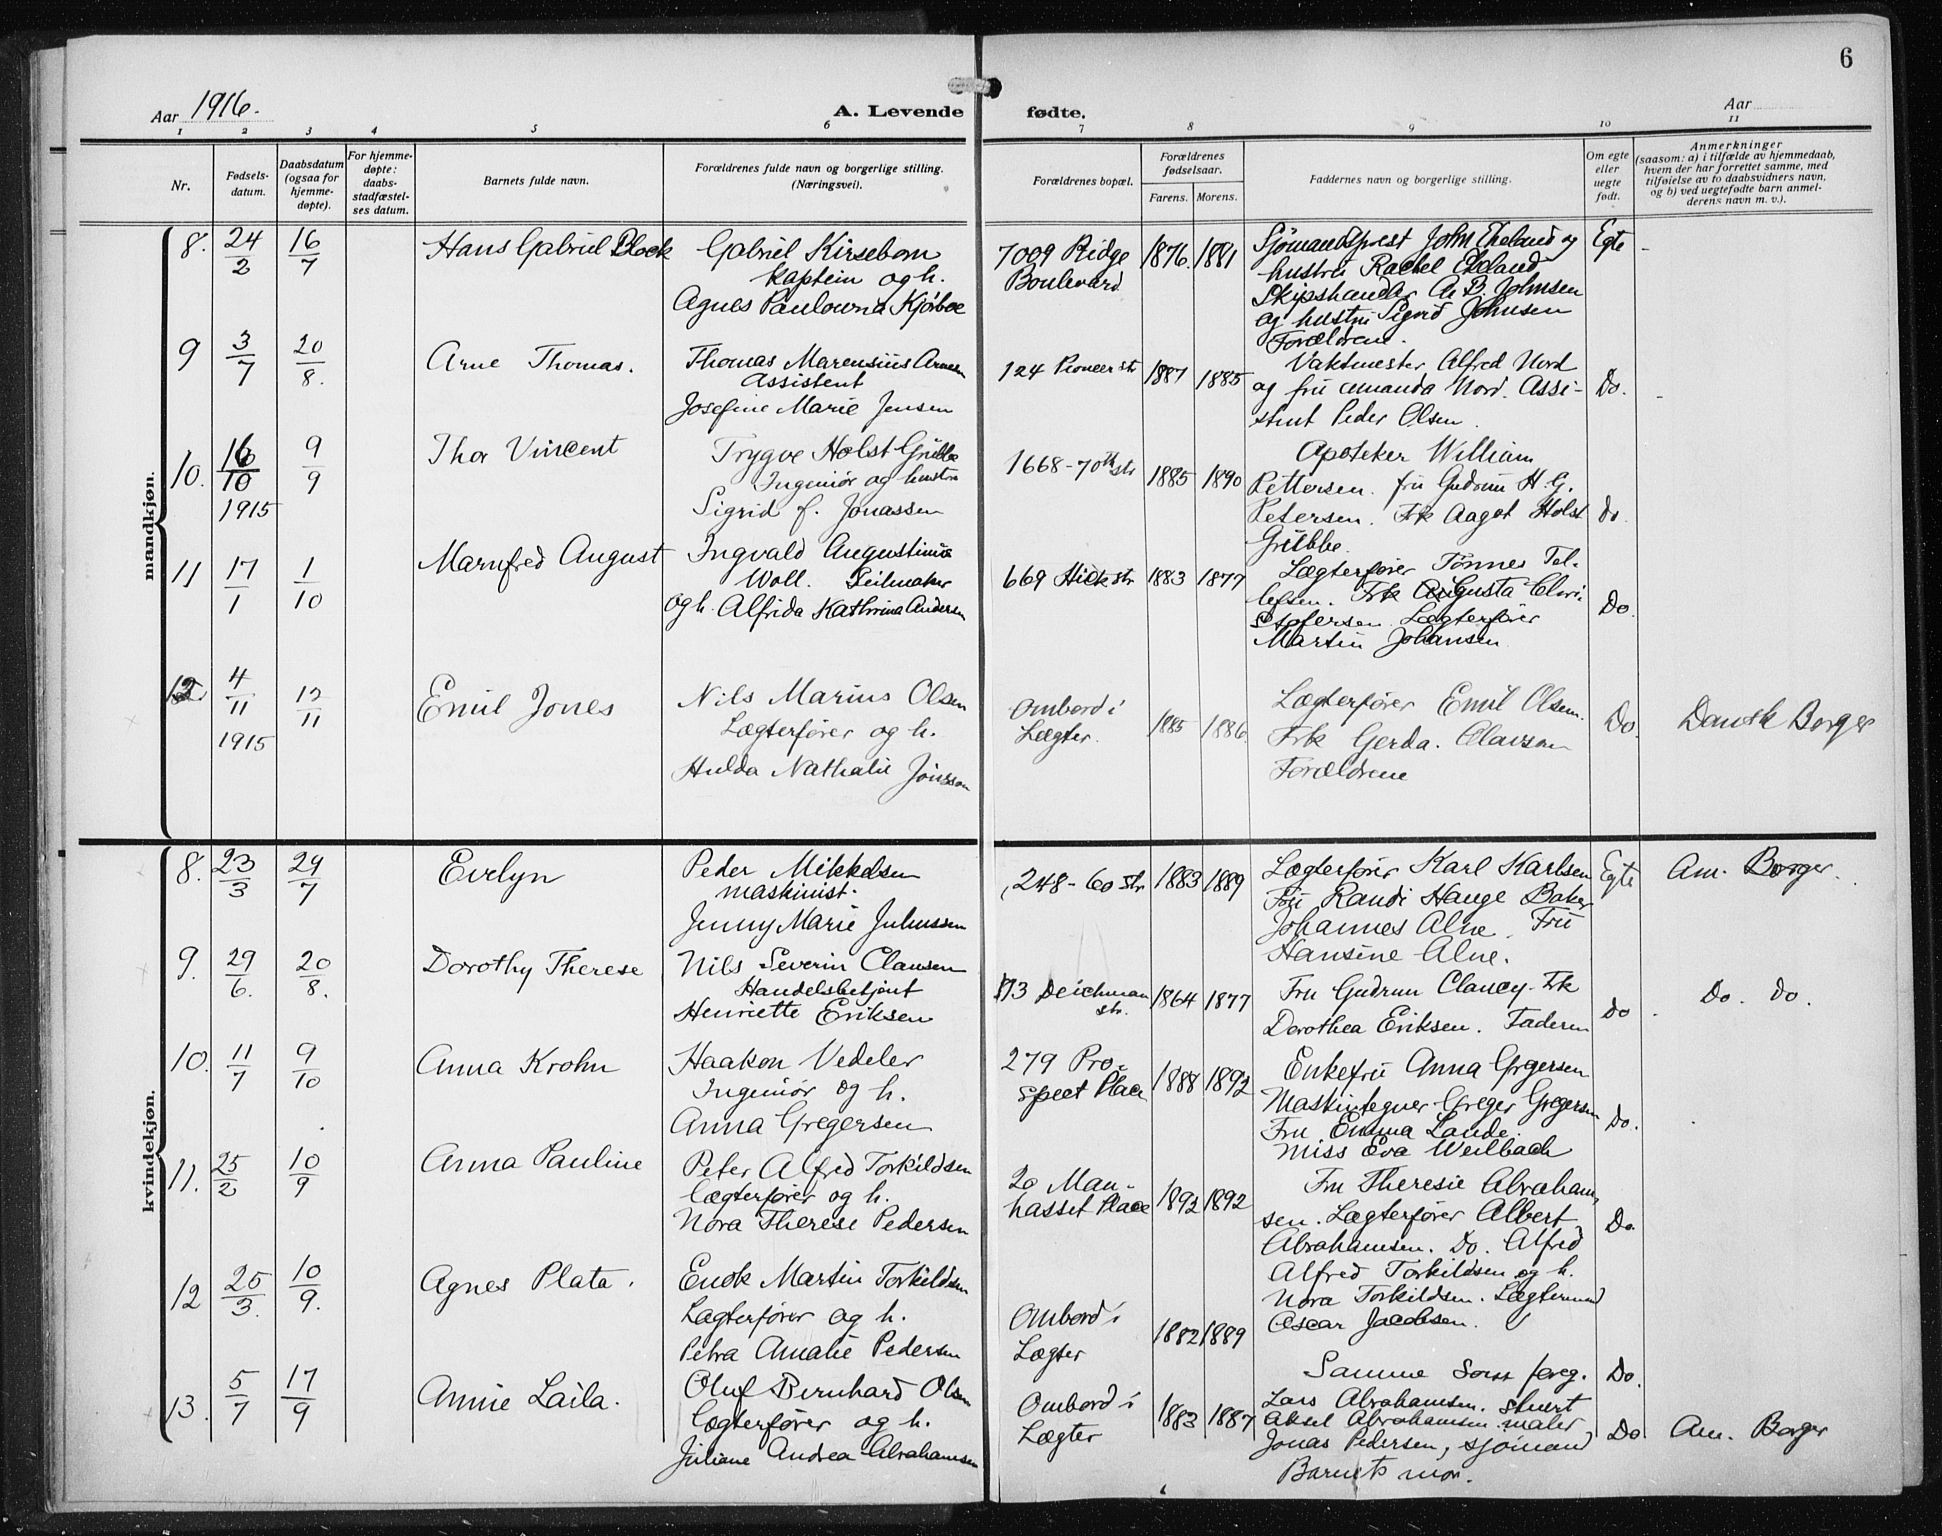 6
Aar 1916.
A. Levende fødte.
Aar
1 2 3 4 5 6 7 8 9 10 11
Nr.
Fødsels-
datum.
Daabsdatum
(ogsaa for
hjemme-
døpte).
For hjemme-
døpte:
daabs-
stadfæstel-
ses datum.
Barnets fulde navn.
Forældrenes fulde navn og borgerlige stilling.
(Næringsvei).
Forældrenes bopæl.
Forældrenes
fødselsaar.
Farens. Morens.
Faddernes navn og borgerlige stilling.
Om egte
eller
uegte
født.
Anmerkninger
(saasom: a) i tilfælde av hjemmedaab,
hvem der har forrettet samme, med
tilføielse av to daabsvidners navn,
og b) ved uegtefødte barn anmel-
derens navn m. v.).
mandkjøn.
8. 24/2 16/7
Hans Gabriel Block
Gabriel Kirsebom
kaptein og h.
Agnes Paulowna Kjörboe
7009 Ridge
Boulevard
1876. 1881
Sjømandsprest John Ekeland og
hustru Rachel Ekeland
Skipshandler A. B. Johnsen
og hustru Sigrid Johnsen
Forældrene.
Egte
9 3/7 20/8.
Arne Thomas.
Thomas Marensius Arnesen
Assistent
Josefine Marie Jensen
124 Pioneer str
1887 1885
Vaktmester Alfred Nord
og fru Amanda Nord. Assi-
stent Peder Olsen.
Do.
10. 16/10 1915 9/9
Thor Vincent
Trygve Holst Gribbe
Ingeniør og hustru
Sigrid f. Jonassen
1668-70th str
1885 1890
Apoteker William
Pettersen. fru Gudrun H. G.
Petersen. Frk Aagot Holst
Gribbe.
Do.
11 17/1 1/10
Marnfred August
Ingvald Augustinus
Woll. Seilmaker
og h. Alfrida Kathrina Andersen
669 Hick str
1883 1877
Lægterfører Tönnes Tel-
lefsen. Frk Augusta Chri-
stofersen Lægterfører
Martin Johansen
Do
12. 4/11 1915 12/11
Emil Jones
Nils Marius Olsen
Lægterfører og h.
Hulda Nathalie Jönsson
Ombord i
Lægter.
1885 1886.
Lægterfører Emil Olsen.
Frk Gerda. Olavson
Forældrene
Do
Dansk Borger
kvindekjøn.
8. 23/3 29/7
Evelyn
Peder Mikkelsen
maskinist.
Jenny Marie Juliussen
248-60 str
1883 1889
Lægterfører Karl Karlsen
Fru Randi Hauge Baker
Johannes Alne. Fru
Hansine Alne.
Egte
Am. Borger.
9. 29/6. 20/8.
Dorothy Therese
Nils Severin Clausen
Handelsbetjent
Henriette Eriksen
113 Deichman
str.
1864 1877
Fru Gudrun Clancy. Frk
Dorothea Eriksen. Faderen
Do
Do. Do.
10. 11/7 9/10
Anna Krohn
Haakon Vedeler
Ingeniør og h.
Anna Gregersen
279 Pro-
spect Place
1888 1892
Enkefru Anna Gregersen
Maskintegner Greger Gregersen
Fru Emma Lande.
Miss Eva Weilbach
Do.
11. 25/2 10/9
Anna Pauline
Peter Alfred Torkildsen
lægterfører og h.
Nora Therese Pedersen
20 Man-
hasset Place
1892 1892
Fru Theresie Abraham-
sen. Lægterfører Albert
Abrahamsen. Do. Alfred
Alfred Torkildsen og h.
Nora Torkildsen. Lægtermand
Oscar Jacobsen.
Do.
12 25/3. 10/9.
Agnes Plata.
Enok Martin Torkildsen
Lægterfører og h.
Petra Amalie Pedersen
Ombord i
Lægter
1882 1889
Samme som foreg.
Do.
13. 5/7 17/9
Annie Laila.
Oluf Bernhard Olsen
lægterfører og h.
Juliane Andrea Abrahamsen
Ombord i
Lægter
1883 1887
Lars Abrahamsen. stuert
Aksel Abrahamsen. maler
Jonas Pedersen, sjömand
Barnets mor.
Do
Am. Borger